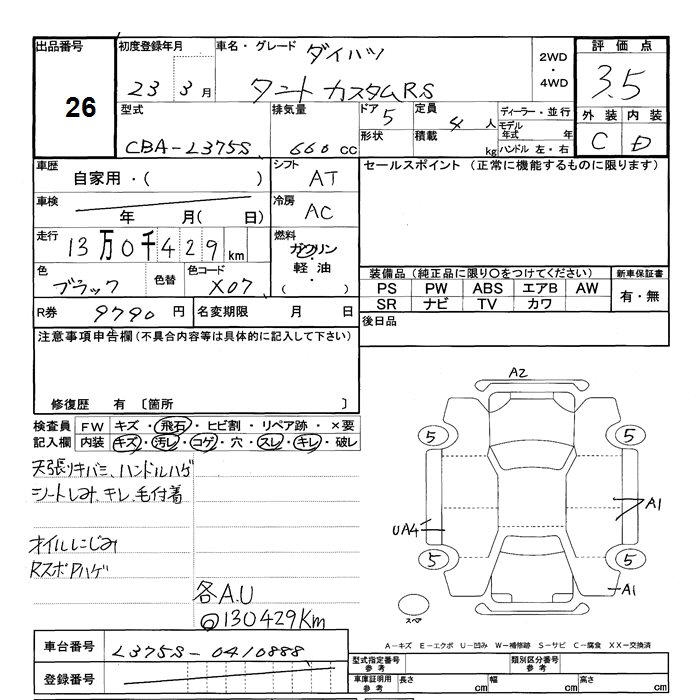 出品番号
26
初度登録年月
23 3月
車名・グレード ダイハツ
タント カスタムRS
2WD
・
4WD
評価点
3.5
型式
CBA-L375S
排気量
660 cc
ドア 5
定員 4 人
ディーラー・並行
モデル年式 年
形状
積載 kg
ハンドル 左・右
外装 内装
C D
車歴
自家用・( )
シフト
AT
セールスポイント (正常に機能するものに限ります)
車検
年 月( 日)
冷房
AC
走行
13万0千429 km
燃料
ガソリン
・
軽油
・
( )
色
ブラック
色替
色コード
X07
装備品(純正品に限り○をつけてください)
新車保証書
PS PW ABS エアB AW
有・無
SR ナビ TV カワ
R券 9790 円
名変期限 月 日
後日品
注意事項申告欄(不具合内容等は具体的に記入して下さい)
修復歴 有 〔箇所 〕
検査員 FW キズ・飛石・ヒビ割・リペア跡・×要
記入欄 内装 キズ・汚レ・コゲ・穴・スレ・キレ・破レ
天張リキバミ、ハンドルハゲ
シートしみ、キレ、毛付着
オイルにじみ
RスポPハゲ
各A.U
@130429Km
A2
5
5
A1
UA4
5
5
A1
スペア
車台番号 L375S-0410888
登録番号
A-キズ E-エクボ U-凹み W-補修跡 S-サビ C-腐食 XX-交換済
型式指定番号
参考
類別区分番号
参考
車庫証明用
参考
長さ cm
幅 cm
高さ cm